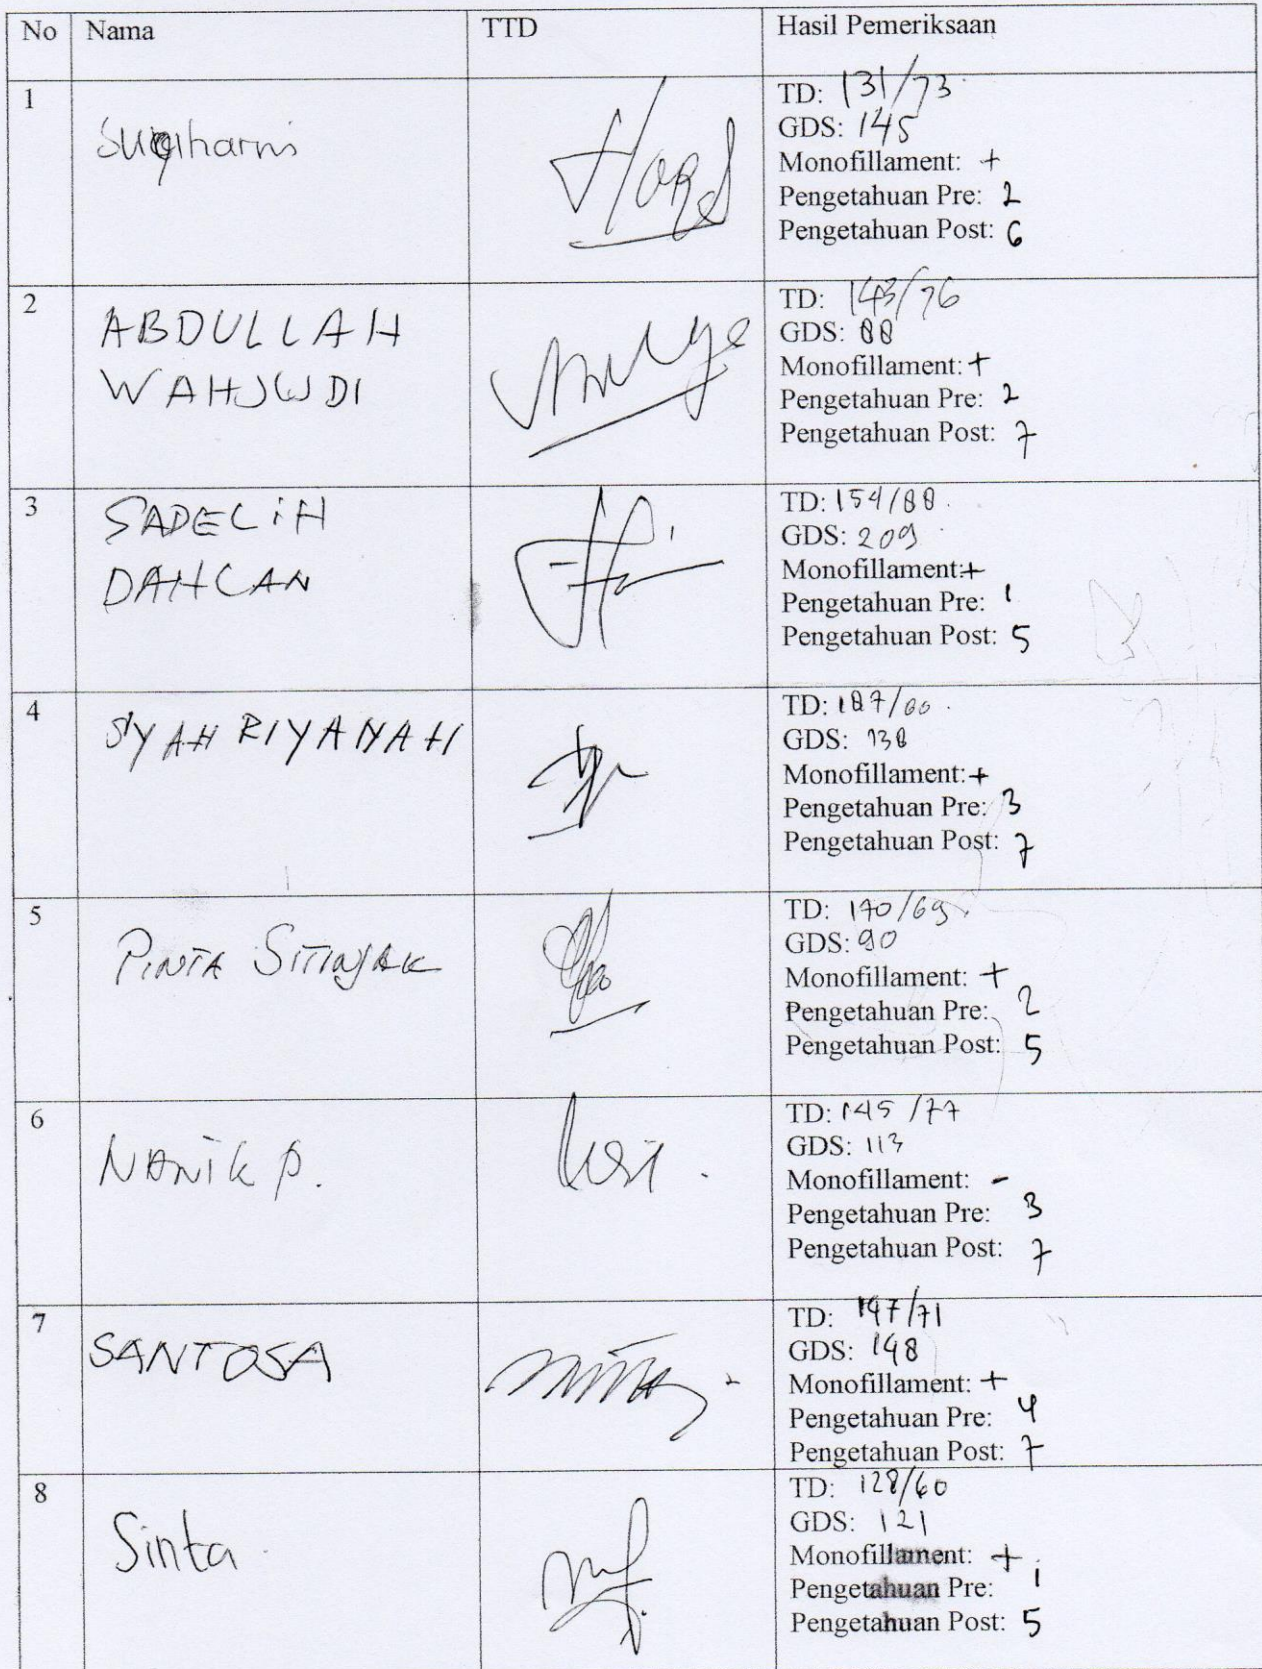 No Nama TTD Hasil Pemeriksaan
1
Sugiharni
TD: 131/73
GDS: 145
Monofillament: +
Pengetahuan Pre: 2
Pengetahuan Post: 6
2
ABDULLAH
WAHJUDI
TD: 143/76
GDS: 88
Monofillament: +
Pengetahuan Pre: 2
Pengetahuan Post: 7
3
SADELiH
DAHLAN
TD: 154/88
GDS: 209
Monofillament: +
Pengetahuan Pre: 1
Pengetahuan Post: 5
4
SYAHRIYANAH
TD: 187/80
GDS: 138
Monofillament: +
Pengetahuan Pre: 3
Pengetahuan Post: 7
5
PINTA SITINJAK
TD: 170/69
GDS: 90
Monofillament: +
Pengetahuan Pre: 2
Pengetahuan Post: 5
6
NANiK P.
TD: 145/77
GDS: 113
Monofillament: -
Pengetahuan Pre: 3
Pengetahuan Post: 7
7
SANTOSA
TD: 147/71
GDS: 148
Monofillament: +
Pengetahuan Pre: 4
Pengetahuan Post: 7
8
Sinta
TD: 128/60
GDS: 121
Monofillament: +
Pengetahuan Pre: 1
Pengetahuan Post: 5